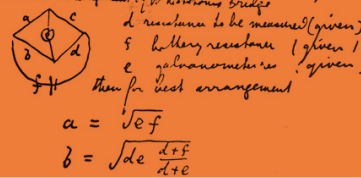 Bridge
a c
b d
f
d resistance to be measured (given)
f battery resistance (given)
e galvanometer res (given
then for best arrangement
a = √ef
b = √de d+f/d+e